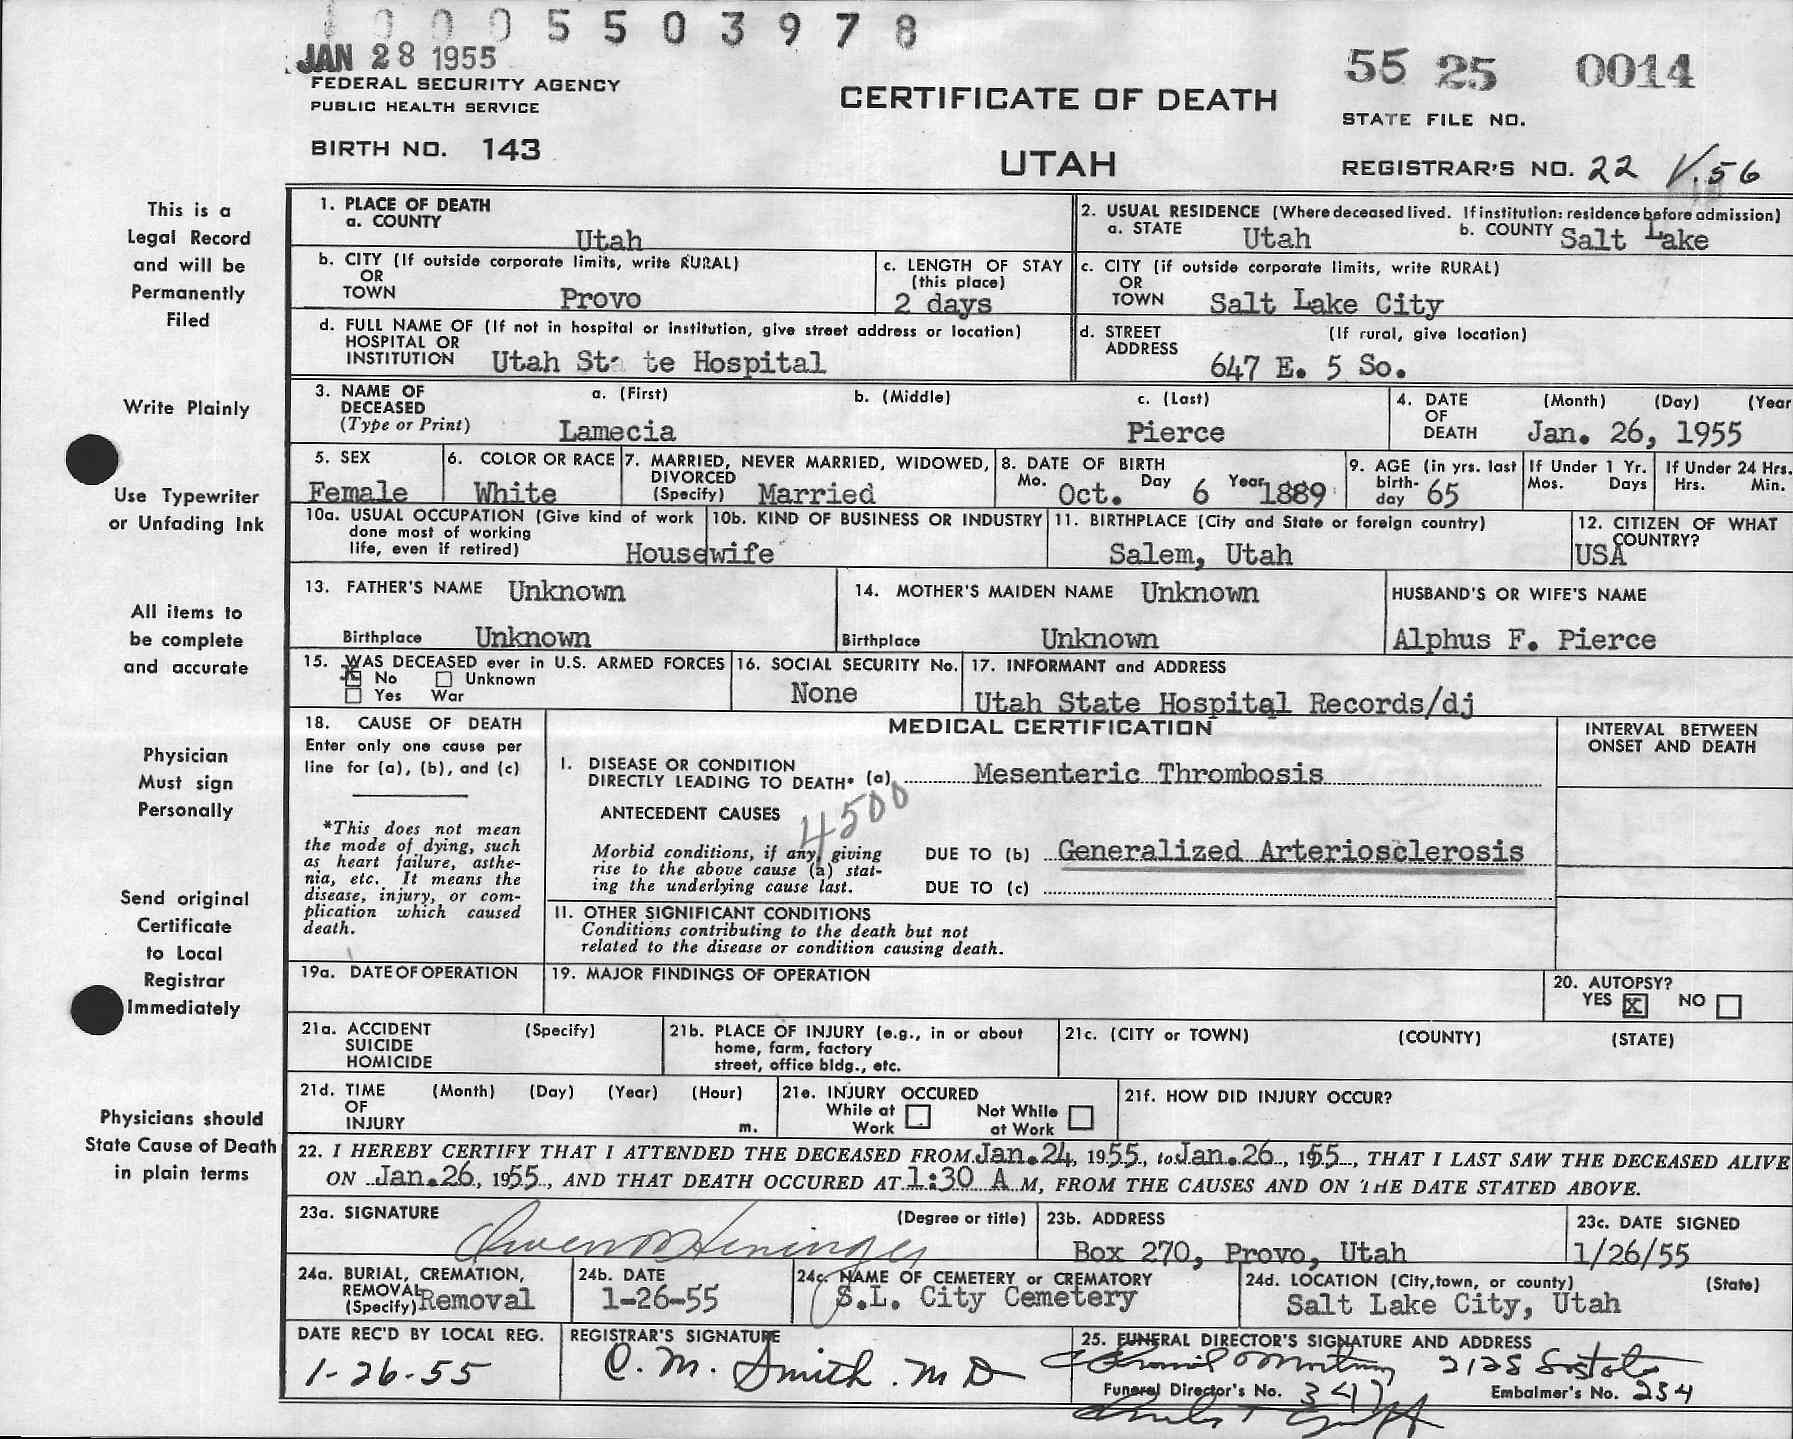 1 0 0 0 5 5 0 3 9 7 8
JAN 28 1955
FEDERAL SECURITY AGENCY
PUBLIC HEALTH SERVICE
BIRTH NO. 143
CERTIFICATE OF DEATH
UTAH
55 25 0014
STATE FILE NO.
REGISTRAR'S NO. 22 V.56
This is a
Legal Record
and will be
Permanently
Filed
Write Plainly
Use Typewriter
or Unfading Ink
All items to
be complete
and accurate
Physician
Must sign
Personally
Send original
Certificate
to Local
Registrar
Immediately
Physicians should
State Cause of Death
in plain terms
1. PLACE OF DEATH
a. COUNTY
Utah
2. USUAL RESIDENCE (Where deceased lived. If institution: residence before admission)
a. STATE Utah b. COUNTY Salt Lake
b. CITY (If outside corporate limits, write RURAL)
OR
TOWN Provo
c. LENGTH OF STAY
(this place)
2 days
c. CITY (if outside corporate limits, write RURAL)
OR
TOWN Salt Lake City
d. FULL NAME OF (If not in hospital or institution, give street address or location)
HOSPITAL OR
INSTITUTION Utah State Hospital
d. STREET (If rural, give location)
ADDRESS
647 E. 5 So.
3. NAME OF a. (First) b. (Middle) c. (Last)
DECEASED
(Type or Print) Lamecia Pierce
4. DATE (Month) (Day) (Year
OF
DEATH Jan. 26, 1955
5. SEX
Female
6. COLOR OR RACE
White
7. MARRIED, NEVER MARRIED, WIDOWED,
DIVORCED
(Specify) Married
8. DATE OF BIRTH
Mo. Oct. Day 6 Year 1889
9. AGE (in yrs. last
birth-
day 65
If Under 1 Yr.
Mos. Days
If Under 24 Hrs.
Hrs. Min.
10a. USUAL OCCUPATION (Give kind of work
done most of working
life, even if retired)
10b. KIND OF BUSINESS OR INDUSTRY
Housewife
11. BIRTHPLACE (City and State or foreign country)
Salem, Utah
12. CITIZEN OF WHAT
COUNTRY?
USA
13. FATHER'S NAME Unknown
Birthplace Unknown
14. MOTHER'S MAIDEN NAME Unknown
Birthplace Unknown
HUSBAND'S OR WIFE'S NAME
Alphus F. Pierce
15. WAS DECEASED ever in U.S. ARMED FORCES
X No Unknown
Yes War
16. SOCIAL SECURITY No.
None
17. INFORMANT and ADDRESS
Utah State Hospital Records/dj
18. CAUSE OF DEATH
Enter only one cause per
line for (a), (b), and (c)
*This does not mean
the mode of dying, such
as heart failure, asthe-
nia, etc. It means the
disease, injury, or com-
plication which caused
death.
MEDICAL CERTIFICATION
INTERVAL BETWEEN
ONSET AND DEATH
I. DISEASE OR CONDITION
DIRECTLY LEADING TO DEATH* (a) Mesenteric Thrombosis
ANTECEDENT CAUSES
4500
Morbid conditions, if any, giving
rise to the above cause (a) stat-
ing the underlying cause last.
DUE TO (b) Generalized Arteriosclerosis
DUE TO (c)
II. OTHER SIGNIFICANT CONDITIONS
Conditions contributing to the death but not
related to the disease or condition causing death.
19a. DATE OF OPERATION
19. MAJOR FINDINGS OF OPERATION
20. AUTOPSY?
YES X NO
21a. ACCIDENT (Specify)
SUICIDE
HOMICIDE
21b. PLACE OF INJURY (e.g., in or about
home, farm, factory
street, office bldg., etc.
21c. (CITY or TOWN) (COUNTY) (STATE)
21d. TIME (Month) (Day) (Year) (Hour)
OF
INJURY m.
21e. INJURY OCCURED
While at Work Not While at Work
21f. HOW DID INJURY OCCUR?
22. I HEREBY CERTIFY THAT I ATTENDED THE DECEASED FROM Jan. 24, 1955, to Jan. 26, 1955, THAT I LAST SAW THE DECEASED ALIVE
ON Jan. 26, 1955, AND THAT DEATH OCCURED AT 1:30 A M, FROM THE CAUSES AND ON THE DATE STATED ABOVE.
23a. SIGNATURE (Degree or title)
Heninger
23b. ADDRESS
Box 270, Provo, Utah
23c. DATE SIGNED
1/26/55
24a. BURIAL, CREMATION,
REMOVAL
(Specify) Removal
24b. DATE
1-26-55
24c. NAME OF CEMETERY or CREMATORY
S.L. City Cemetery
24d. LOCATION (City, town, or county) (State)
Salt Lake City, Utah
DATE REC'D BY LOCAL REG.
1-26-55
REGISTRAR'S SIGNATURE
C. M. Smith. M D
25. FUNERAL DIRECTOR'S SIGNATURE AND ADDRESS
Funeral Director's No. 347 Embalmer's No. 234